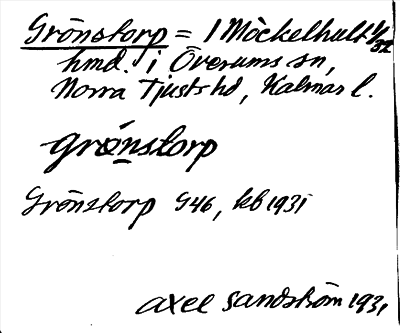 Grönstorp = 1 Möckelhult 1/32
hmd. i Överums sn,
Norra Tjusts hd, Kalmar l.
grǿnstorp
Grönstorp G46, kb 1931
Axel Sandström 1931